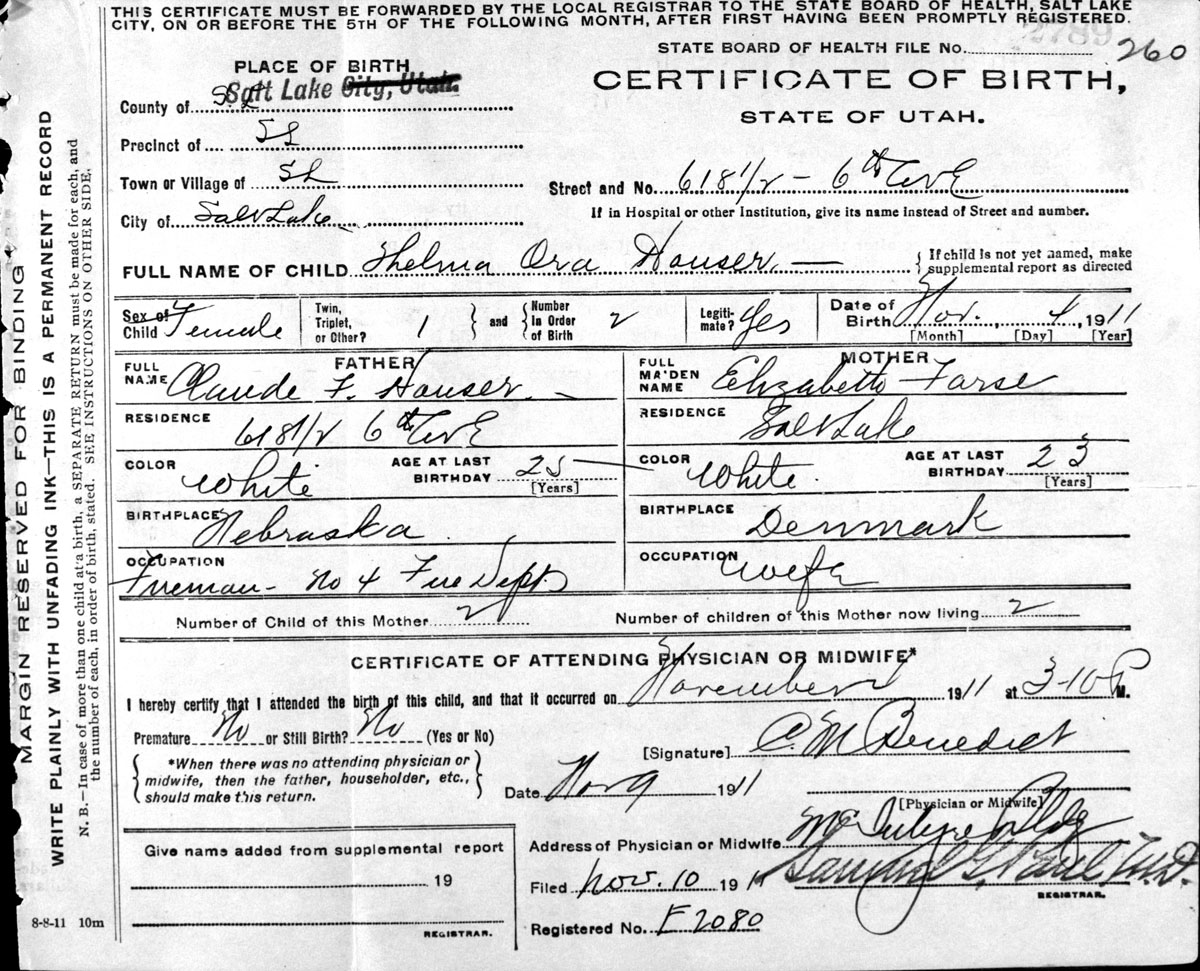 THIS CERTIFICATE MUST BE FORWARDED BY THE LOCAL REGISTRAR TO THE STATE BOARD OF HEALTH, SALT LAKE
CITY, ON OR BEFORE THE 5TH OF THE FOLLOWING MONTH, AFTER FIRST HAVING BEEN PROMPTLY REGISTERED.
2789
STATE BOARD OF HEALTH FILE No. 260
PLACE OF BIRTH
CERTIFICATE OF BIRTH,
STATE OF UTAH.
County of Salt Lake City, Utah.
Precinct of SL
Town or Village of SL
Street and No. 618 1/2 - 6th Ave
If in Hospital or other Institution, give its name instead of Street and number.
City of Salt Lake
FULL NAME OF CHILD Thelma Ora Houser.
{ If child is not yet named, make
supplemental report as directed
Sex of Child Female
Twin, Triplet, or Other? 1
and
Number in Order of Birth 2
Legiti-mate? Yes
Date of Birth Nov. 4, 1911
[Month] [Day] [Year]
FATHER
FULL NAME Claude F. Houser
RESIDENCE 618 1/2 6th Ave
COLOR White
AGE AT LAST BIRTHDAY 25
[Years]
BIRTHPLACE Nebraska
OCCUPATION Fireman - No 4 Fire Dept
MOTHER
FULL MAIDEN NAME Elizabeth Farse
RESIDENCE Salt Lake
COLOR White
AGE AT LAST BIRTHDAY 23
[Years]
BIRTHPLACE Denmark
OCCUPATION Wife
Number of Child of this Mother 2
Number of children of this Mother now living 2
CERTIFICATE OF ATTENDING PHYSICIAN OR MIDWIFE*
I hereby certify that I attended the birth of this child, and that it occurred on November 1911 at 3-10 P M.
Premature No or Still Birth? No (Yes or No)
[Signature] C. M. Benedict
{ *When there was no attending physician or
midwife, then the father, householder, etc.,
should make this return. }
Date Nov 9 1911
[Physician or Midwife]
Address of Physician or Midwife McIntyre Bldg
Give name added from supplemental report
19
REGISTRAR.
Filed Nov. 10 1911 Samuel G. Paul M.D.
REGISTRAR.
Registered No. E2080
8-8-11 10m
MARGIN RESERVED FOR BINDING
WRITE PLAINLY WITH UNFADING INK—THIS IS A PERMANENT RECORD
N. B.—In case of more than one child at a birth, a SEPARATE RETURN must be made for each, and
the number of each, in order of birth, stated. SEE INSTRUCTIONS ON OTHER SIDE.